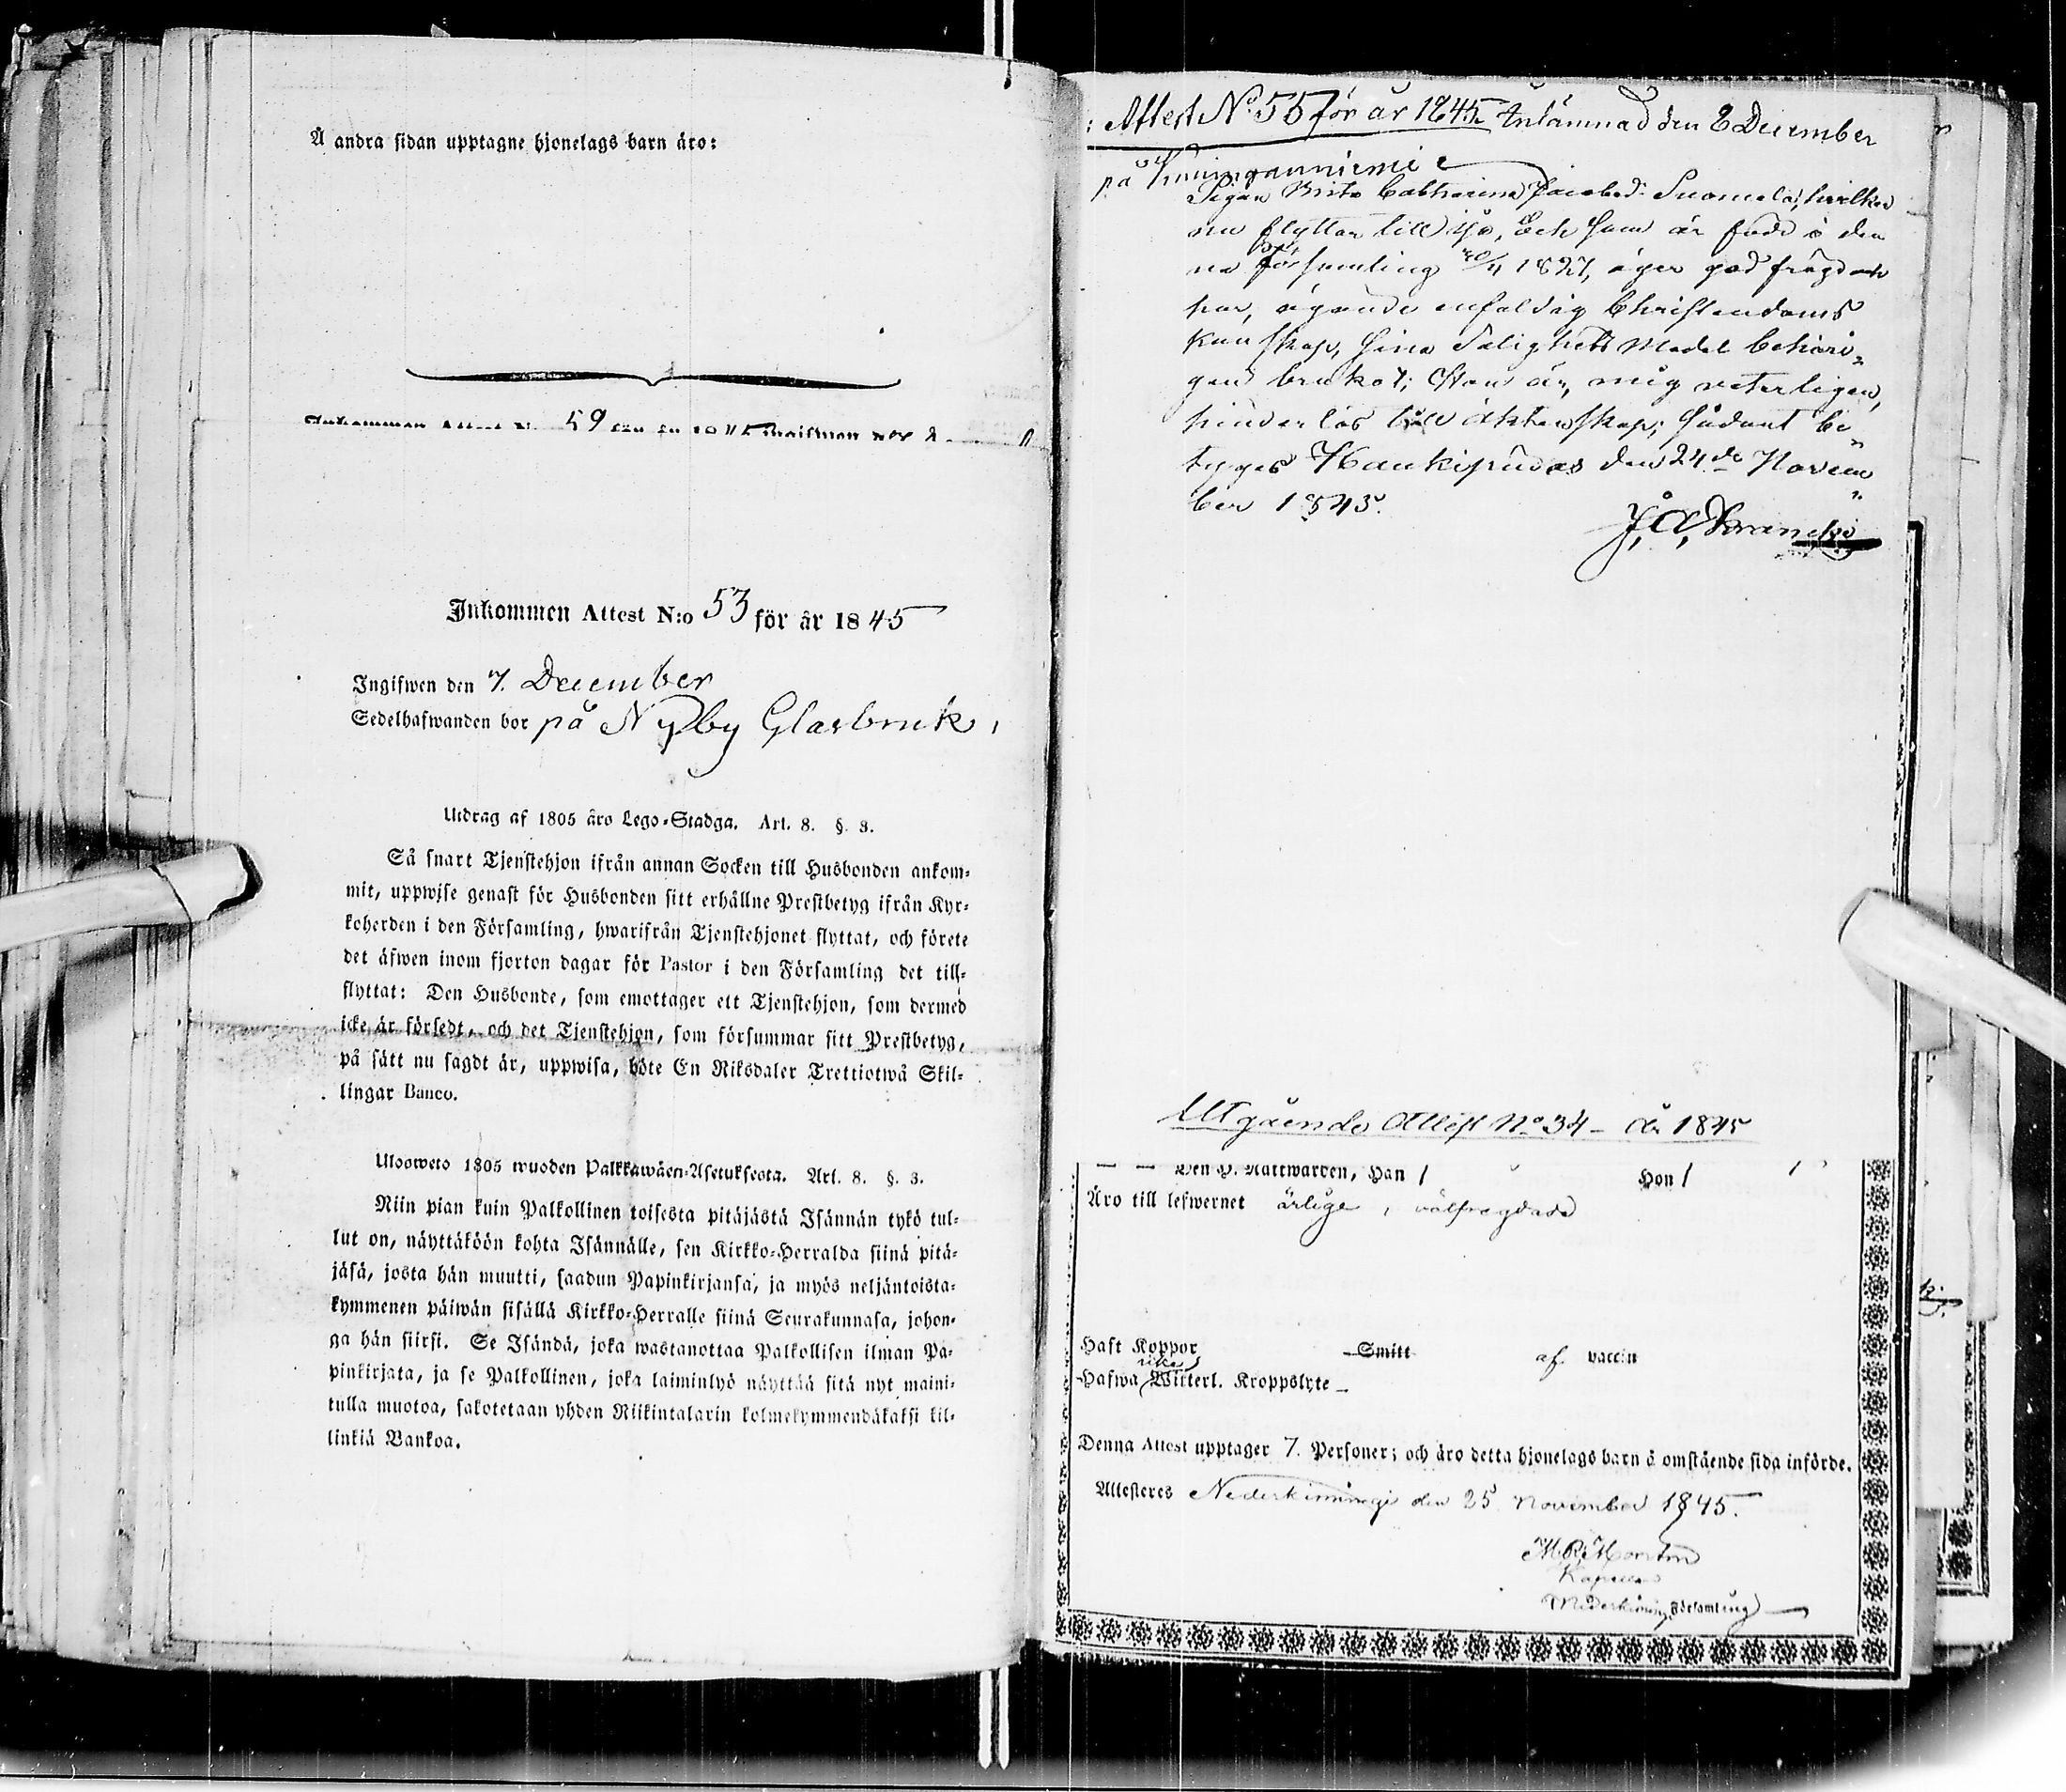 Å andra sidan upptagne hjonelags barn äro:
Inkommen Attest N:o 59
Inkommen Attest N:o 53 för år 1845
Ingifwen den 7. December
Sedelhafwanden bor på Nyby Glasbruk.
Utdrag af 1805 års Lego-Stadga. Art. 8. §. 3.
Så snart Tjenstehjon ifrån annan Socken till Husbonden ankom-
mit, uppwise genast för Husbonden sitt erhållne Prestbetyg ifrån Kyr-
koherden i den Församling, hwarifrån Tjenstehjonet flyttat, och förete
det äfwen inom fjorton dagar för Pastor i den Församling det till-
flyttat: Den Husbonde, som emottager ett Tjenstehjon, som dermed
icke är försedt, och det Tjenstehjon, som försummar sitt Prestbetyg,
på sätt nu sagdt är, uppwisa, böte En Riksdaler Trettiotwå Skil-
lingar Banco.
Ulosweto 1805 wuoden Palkkawäen-Asetuksesta. Art. 8. §. 3.
Niin pian kuin Palkollinen toisesta pitäjästä Isännän tykö tul-
lut on, näyttäköön kohta Isännälle, sen Kirkko-Herralda siinä pitä-
jäsä, josta hän muutti, saadun Papinkirjansa, ja myös neljäntoista-
kymmenen päiwän sisällä Kirkko-Herralle siinä Seurakunnasa, johon-
ga hän siirsi. Se Isändä, joka wastanottaa Palkollisen ilman Pa-
pinkirjata, ja se Palkollinen, joka laiminlyö näyttää sitä nyt maini-
tulla muotoa, sakotetaan yhden Riikintalarin kolmekymmendäkaksi kil-
linkiä Bankoa.
Attest No 55 för år 1845 Inlämnad den 8 December
på Kuninganniemi
Pigan Brita Catharina Jacobsd: Suomela, hvilken
nu flyttar till Ijo, och som är född i den
na församling 20/11 1827, äger god frägd och
har, ägande enfaldig Christendoms
kunskap, sina Salighets Medel behöri-
gen brukat; Hon är, mig veterligen,
hinderlös till äktenskap; sådant be-
tygas Haukipudas den 24de Novem
ber 1845.
Utgående Attest No 34 - År 1845
Den H. Nattwarden, Han / Hon /
Äro till lefwernet ärlige, välfregdade
Haft Koppor Smitt af vaccin
Hafwa icke Witterl. Kroppslyte
Denna Attest upptager 7. Personer; och äro detta hjonelags barn å omstående sida införde.
Attesteres Nederkiiminge den 25 November 1845.
Kapellan
Nederkiiminge Församling